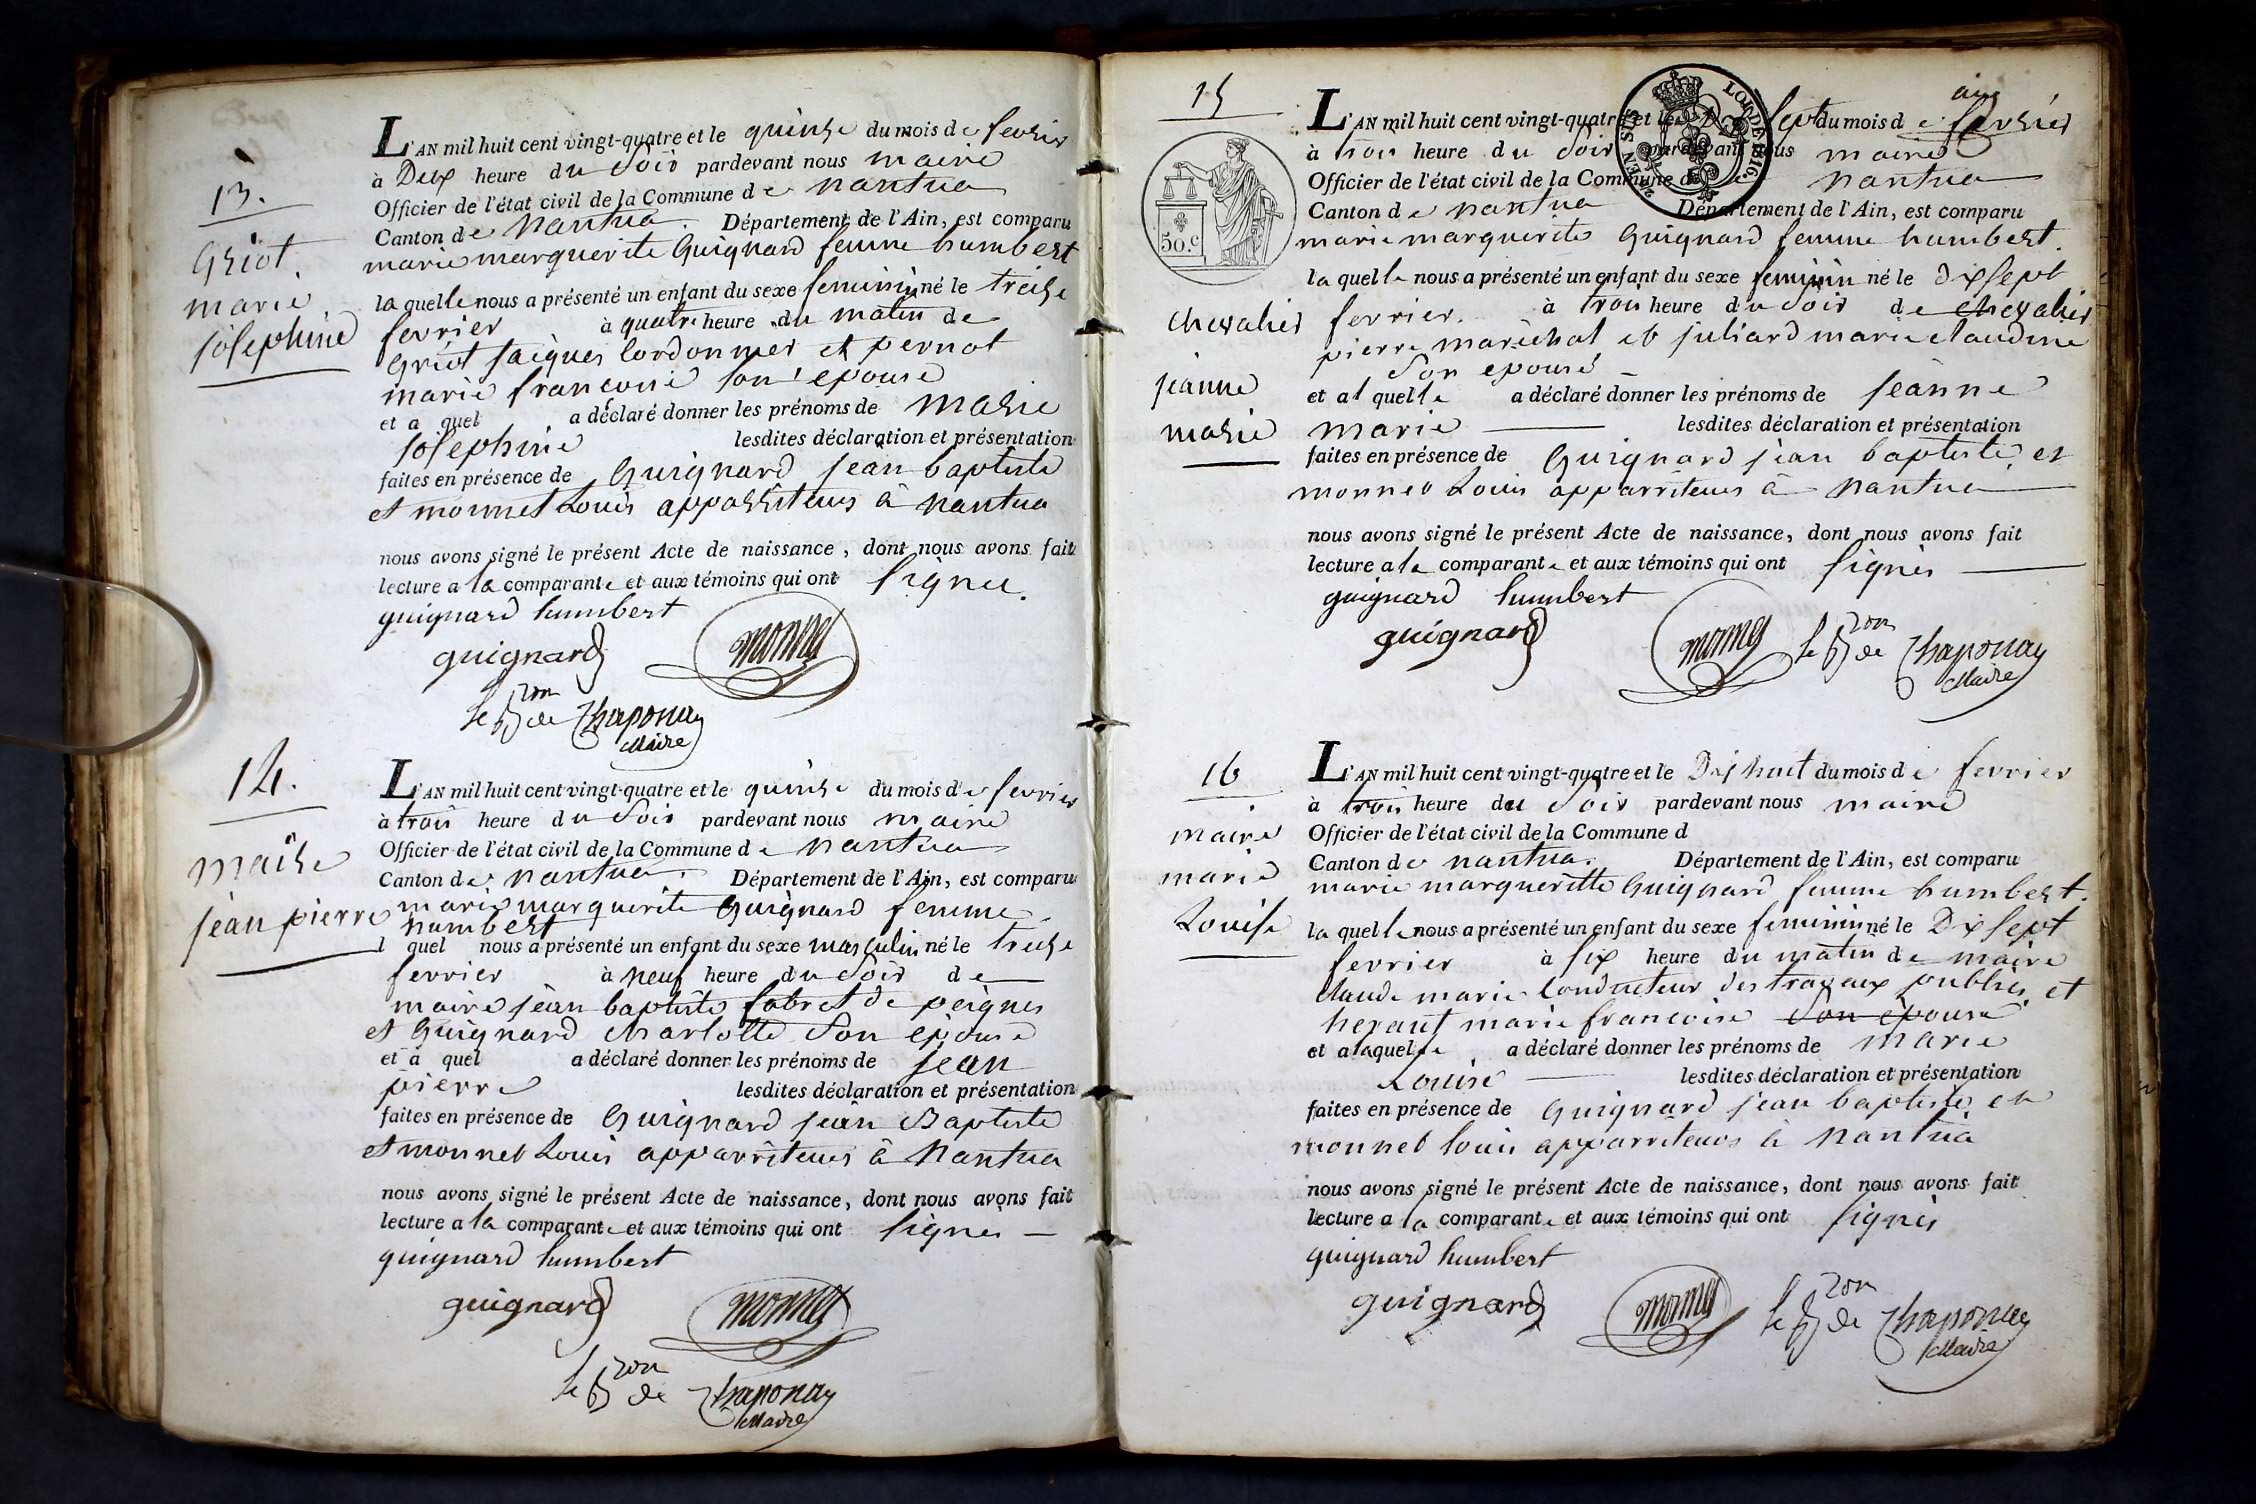 13.
Griot
marie
josephine
L'AN mil huit cent vingt-quatre et le quinze du mois de fevrier
à Deux heure du soir pardevant nous maire
Officier de l'état civil de la Commune de nantua
Canton de Nantua. Département de l'Ain, est comparu
marie marguerite Guignard femme humbert
la quelle nous a présenté un enfant du sexe feminin né le treize
fevrier à quatre heure du matin de
Griot jacques Cordonnier et pernot
marie francoise son epouse
et a quel a déclaré donner les prénoms de marie
josephine lesdites déclaration et présentation
faites en présence de Guignard jean baptiste
et monnet Louis apparriteurs à nantua
nous avons signé le présent Acte de naissance, dont nous avons fait
lecture a la comparante et aux témoins qui ont signés.
guignard humbert
guignard monnet
le Bron de Chaponay
Maire
14.
maire
jean pierre
L'AN mil huit cent vingt-quatre et le quinze du mois de fevrier
à trois heure du soir pardevant nous maire
Officier de l'état civil de la Commune de nantua
Canton de nantua. Département de l'Ain, est comparu
marie marguerite Guignard femme
humbert
l quel nous a présenté un enfant du sexe masculin né le treize
fevrier à neuf heure du soir de
maire jean baptiste fabrct de peignes
et Guignard charlotte son epouse
et a quel a déclaré donner les prénoms de jean
pierre lesdites déclaration et présentation
faites en présence de Guignard jean Baptiste
et monnet Louis apparriteurs à Nantua
nous avons signé le présent Acte de naissance, dont nous avons fait
lecture a la comparante et aux témoins qui ont signés
guignard humbert
guignard monnet
le Bron de Chaponay
Maire
15
50.c
chevalier
jeanne
marie
ain
LOI DE 1816.
EN SUS
L'AN mil huit cent vingt-quatre et le Dix sept du mois de fevrier
à trois heure du soir pardevant nous maire
Officier de l'état civil de la Commune de nantua
Canton de nantua Département de l'Ain, est comparu
marie marguerite Guignard femme humbert.
la quelle nous a présenté un enfant du sexe feminin né le dix sept
fevrier. à trois heure du soir de chevalier
pierre maréchal et juliard marie claudine
son epouse
et a l quelle a déclaré donner les prénoms de jeanne
marie lesdites déclaration et présentation
faites en présence de Guignard jean baptiste et
monnet Louis apparriteurs à nantua
nous avons signé le présent Acte de naissance, dont nous avons fait
lecture a la comparante et aux témoins qui ont signés
guignard humbert
guignard monnet le Bron de Chaponay
Maire
16
maire
marie
Louise
L'AN mil huit cent vingt-quatre et le Dix huit du mois de fevrier
à trois heure du soir pardevant nous maire
Officier de l'état civil de la Commune d
Canton de nantua. Département de l'Ain, est comparu
marie marguerite Guignard femme humbert.
la quelle nous a présenté un enfant du sexe feminin né le Dix sept
fevrier à six heure du matin de maire
claude marie Conducteur des travaux publics et
heraut marie francoise son epouse
et a laquelle a déclaré donner les prénoms de marie
Louise lesdites déclaration et présentation
faites en présence de Guignard jean baptiste et
monnet louis apparriteurs à Nantua
nous avons signé le présent Acte de naissance, dont nous avons fait
lecture a la comparante et aux témoins qui ont signés
guignard humbert
guignard monnet le Bron de Chaponay
Maire